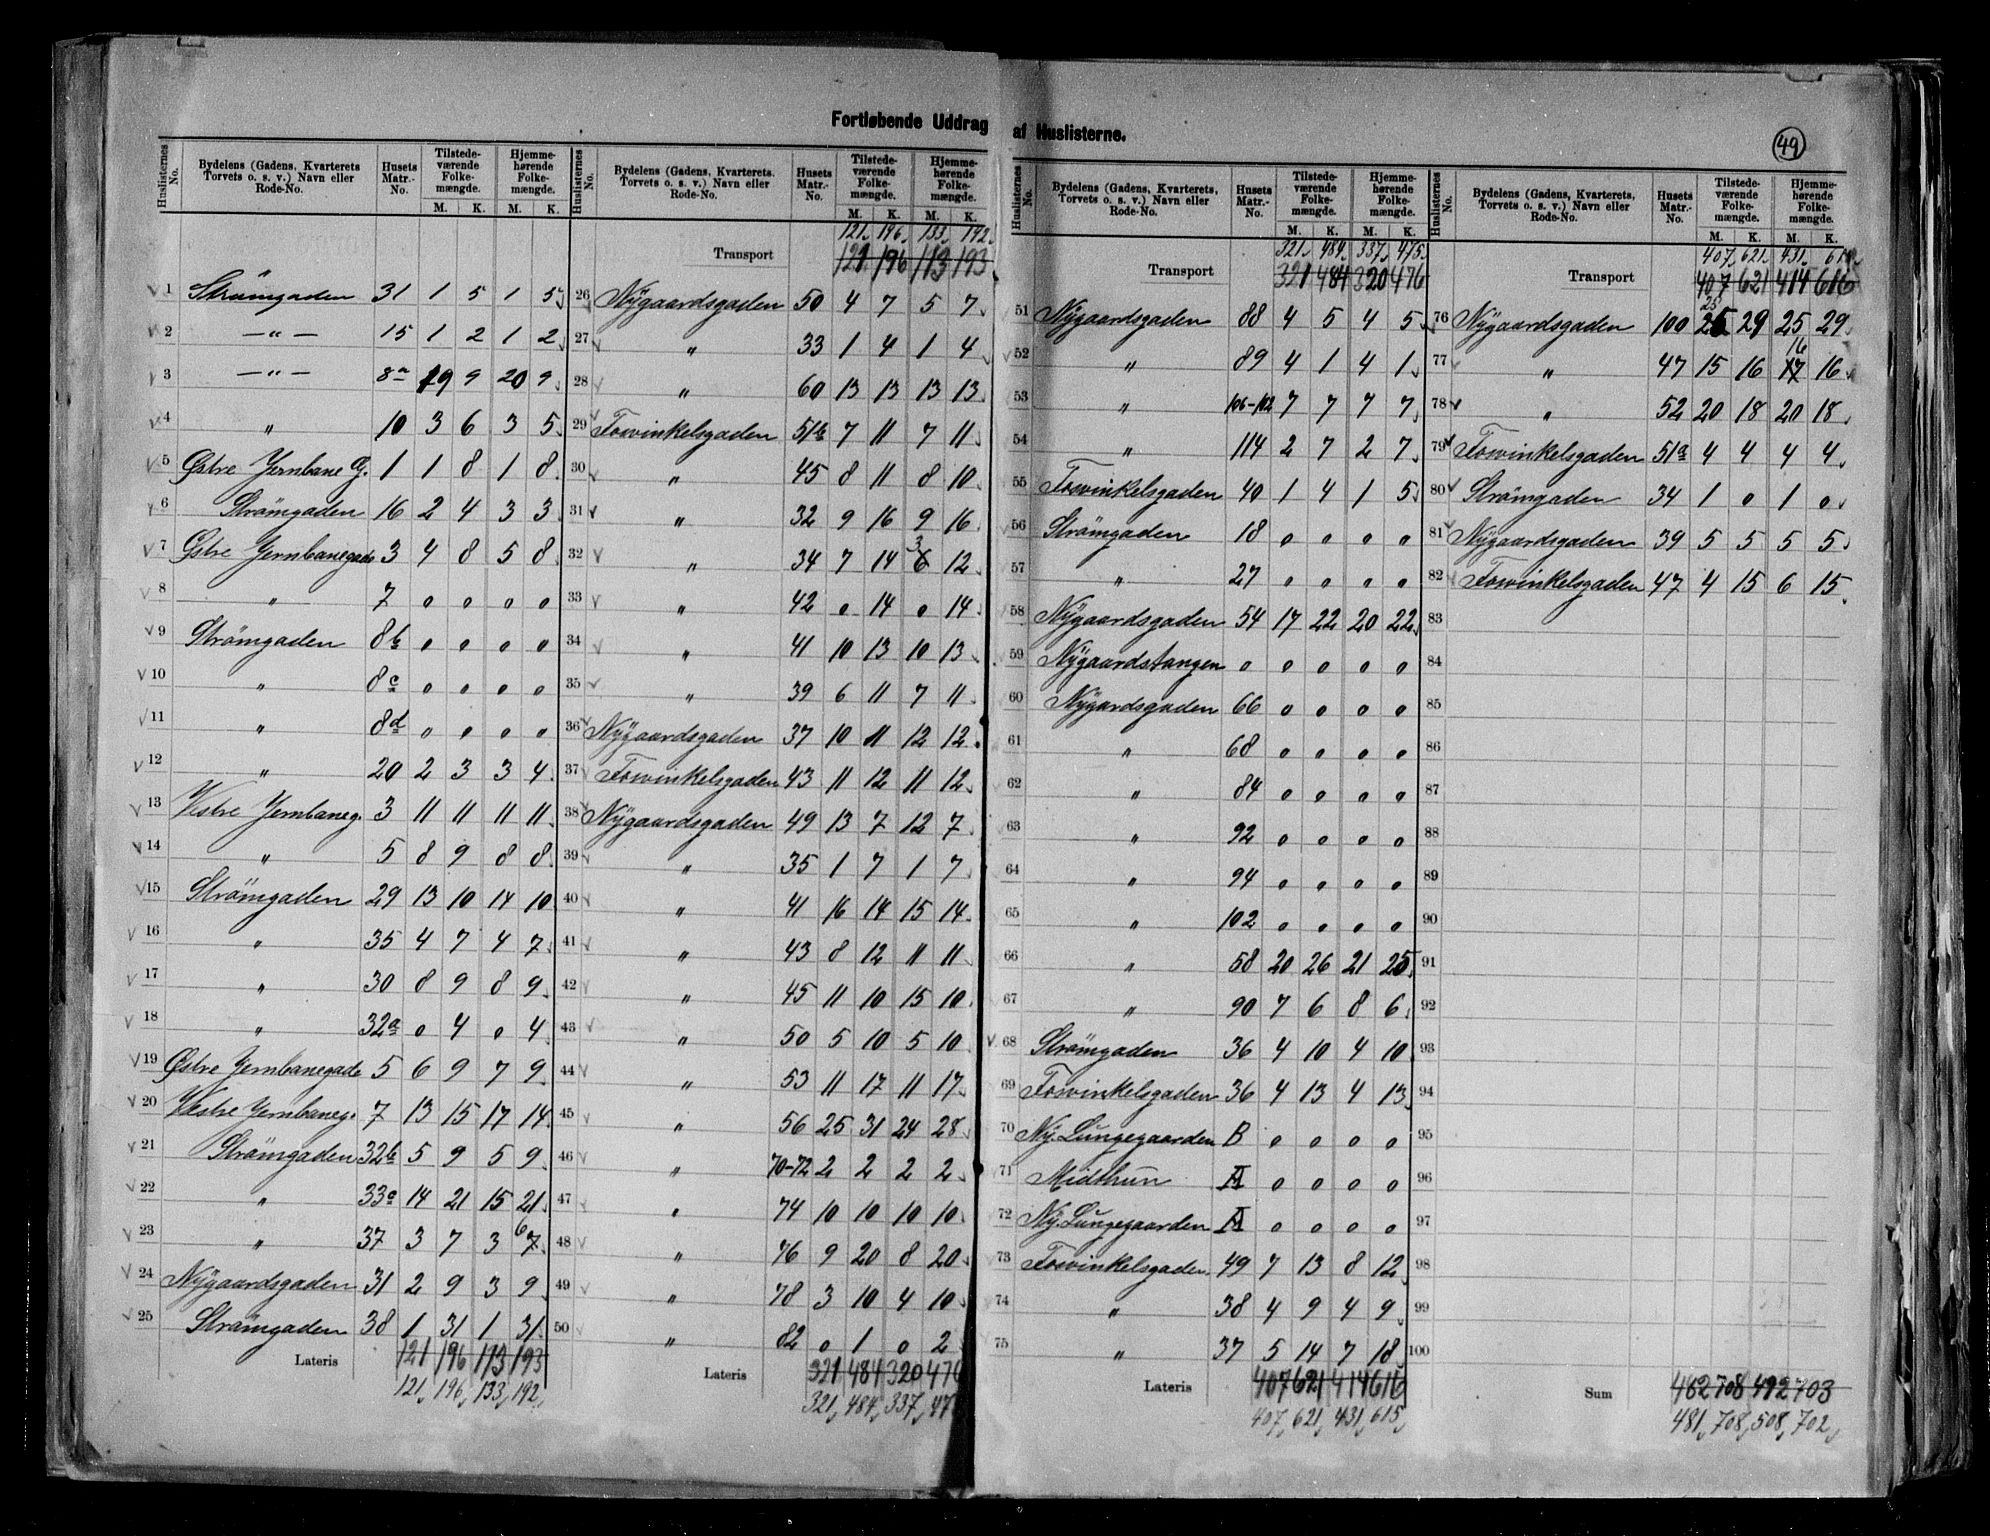 Fortløbende Uddrag af Huslisterne.
49
Huslisternes No. | Bydelens (Gadens, Kvarterets Torvets o. s. v.) Navn eller Rode-No. | Husets Matr.-No. | Tilstedeværende Folkemængde. M. K. | Hjemmehørende Folkemængde. M. K.
1 Strömgaden 31 1 5 1 5
2 — " — 15 1 2 1 2
3 — " — 8a 19 9 20 9
4 " 10 3 6 3 5
5 Østre Jernbane G. 1 1 8 1 8
6 Strömgaden 16 2 4 3 3
7 Østre Jernbanegade 3 4 8 5 8
8 " 7 0 0 0 0
9 Strömgaden 8b 0 0 0 0
10 " 8c 0 0 0 0
11 " 8d 0 0 0 0
12 " 20 2 3 3 4
13 Vestre Jernbaneg. 3 11 11 11 11
14 " 5 8 9 8 8
15 Strömgaden 29 13 10 14 10
16 " 35 4 7 4 7
17 " 30 8 9 8 9
18 " 32a 0 4 0 4
19 Østre Jernbanegade 5 6 9 7 9
20 Vestre Jernbaneg. 7 13 15 17 14
21 Strömgaden 32b 5 9 5 9
22 " 33a 14 21 15 21
23 " 37 3 7 3 7 6
24 Nÿgaardsgaden 31 2 9 3 9
25 Strömgaden 38 1 31 1 31
Lateris 121 196 113 193
121 196 133 192
Huslisternes No. | Bydelens (Gadens, Kvarterets. Torvets o. s. v.) Navn eller Rode-No. | Husets Matr.-No. | Tilstedeværende Folkemængde. M. K. | Hjemmehørende Folkemængde. M. K.
121 196 133 192
Transport 121 196 113 193
26 Nÿgaardsgaden 50 4 7 5 7
27 " 33 1 4 1 4
28 " 60 13 13 13 13
29 Foswinkelsgaden 51b 7 11 7 11
30 " 45 8 11 8 10
31 " 32 9 16 9 16
32 " 34 7 14 6 3 12
33 " 42 0 14 0 14
34 " 41 10 13 10 13
35 " 39 6 11 7 11
36 Nÿgaardsgaden 37 10 11 12 12
37 Foswinkelsgaden 43 11 12 11 12
38 Nÿgaardsgaden 49 13 7 12 7
39 " 35 1 7 1 7
40 " 41 16 14 15 14
41 " 43 8 12 11 11
42 " 45 11 10 15 10
43 " 50 5 10 5 10
44 " 53 11 17 11 17
45 " 56 25 31 24 28
46 " 70-72 2 2 2 2
47 " 74 10 10 10 10
48 " 76 9 20 8 20
49 " 78 3 10 4 10
50 " 82 0 1 0 2
Lateris 321 484 320 476
321 484 337 47
Huslisternes No. | Bydelens (Gadens, Kvarterets, Torvets o. s. v.) Navn eller Rode-No. | Husets Matr.-No. | Tilstedeværende Folkemængde. M. K. | Hjemmehørende Folkemængde. M. K.
321 484 337 475
Transport 321 484 320 476
51 Nÿgaardsgaden 88 4 5 4 5
52 " 89 4 1 4 1
53 " 106-102 7 7 7 7
54 " 114 2 7 2 7
55 Foswinkelsgaden 40 1 4 1 5
56 Strömgaden 18 0 0 0 0
57 " 27 0 0 0 0
58 Nÿgaardsgaden 54 17 22 20 22
59 Nÿgaardstangen 0 0 0 0 0
60 Nÿgardsgaden 66 0 0 0 0
61 " 68 0 0 0 0
62 " 84 0 0 0 0
63 " 92 0 0 0 0
64 " 94 0 0 0 0
65 " 102 0 0 0 0
66 " 58 20 26 21 25
67 " 90 7 6 8 6
68 Strömgaden 36 4 10 4 10
69 Foswinkelsgaden 36 4 13 4 13
70 Ny. Lungegaarden B 0 0 0 0
71 Midthun A 0 0 0 0
72 Ny. Lungegaarden A 0 0 0 0
73 Foswinkelsgaden 49 7 13 8 12
74 " 38 4 9 4 9
75 " 37 5 14 7 18
Lateris 407 621 414 616
407 621 431 615
Huslisternes No. | Bydelens (Gadens, Kvarterets, Torvets o. s. v.) Navn eller Rode-No. | Husets Matr.-No. | Tilstedeværende Folkemængde. M. K. | Hjemmehørende Folkemængde. M. K.
407 621 431 615
Transport 407 621 414 616
76 Nÿgaardsgaden 100 25 25 29 25 29
77 " 47 15 16 17 16 16
78 " 52 20 18 20 18
79 Foswinkelsgaden 51a 4 4 4 4
80 Strömgaden 34 1 0 1 0
81 Nÿgaardsgaden 39 5 5 5 5
82 Foswinkelsgaden 47 4 15 6 15
83
84
85
86
87
88
89
90
91
92
93
94
95
96
97
98
99
100
Sum 482 708 492 703
481 708 508 702